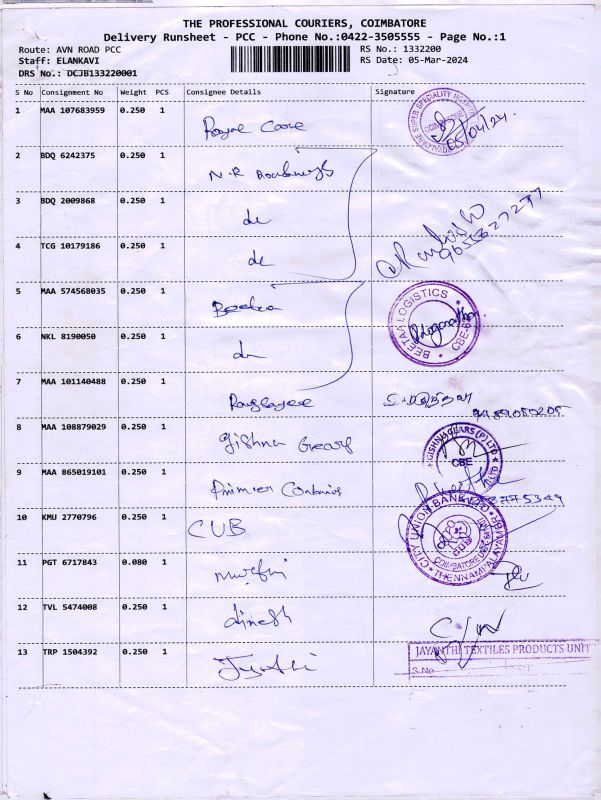 THE PROFESSIONAL COURIERS, COIMBATORE
Delivery Runsheet - PCC - Phone No.:0422-3505555 - Page No.:1
Route: AVN ROAD PCC
RS No.: 1332200
Staff: ELANKAVI
RS Date: 05-Mar-2024
DRS No.: DCJB133220001
S No Consignment No Weight PCS Consignee Details Signature
1 MAA 107683959 0.250 1 Royal Care
05/04/24
2 BDQ 6242375 0.250 1 N.R
3 BDQ 2009868 0.250 1 do
4 TCG 10179186 0.250 1 do
5 MAA 574568035 0.250 1 Beetaa
BEETAA LOGISTICS CBE-6
6 NKL 8190050 0.250 1 do
7 MAA 101140488 0.250 1
8 MAA 108879029 0.250 1 Gishnu Gears
GISHNU GEARS (P) LTD CBE
9 MAA 865019101 0.250 1 Premier
10 KMU 2770796 0.250 1 CUB
CITY UNION BANK LTD
CUB
COIMBATORE
11 PGT 6717843 0.080 1
12 TVL 5474008 0.250 1 dinesh
13 TRP 1504392 0.250 1 Jyothi
JAYANTHI TEXTILES PRODUCTS UNIT
S.No